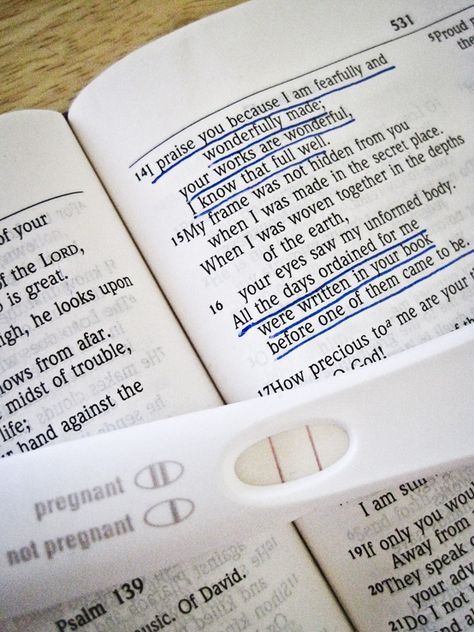 531
14I praise you because I am fearfully and
wonderfully made;
your works are wonderful,
I know that full well.
15My frame was not hidden from you
when I was made in the secret place.
When I was woven together in the depths
of the earth,
16 your eyes saw my unformed body.
All the days ordained for me
were written in your book
before one of them came to be.
17How precious to a me are your
O God!
5Proud
the
of your
of the LORD,
is great.
he looks upon
from afar.
midst of trouble,
life;
hand against the
pregnant
not pregnant
Psalm 139
Of David.
I am
19If only you
Away from
20They speak
your
21Do I not